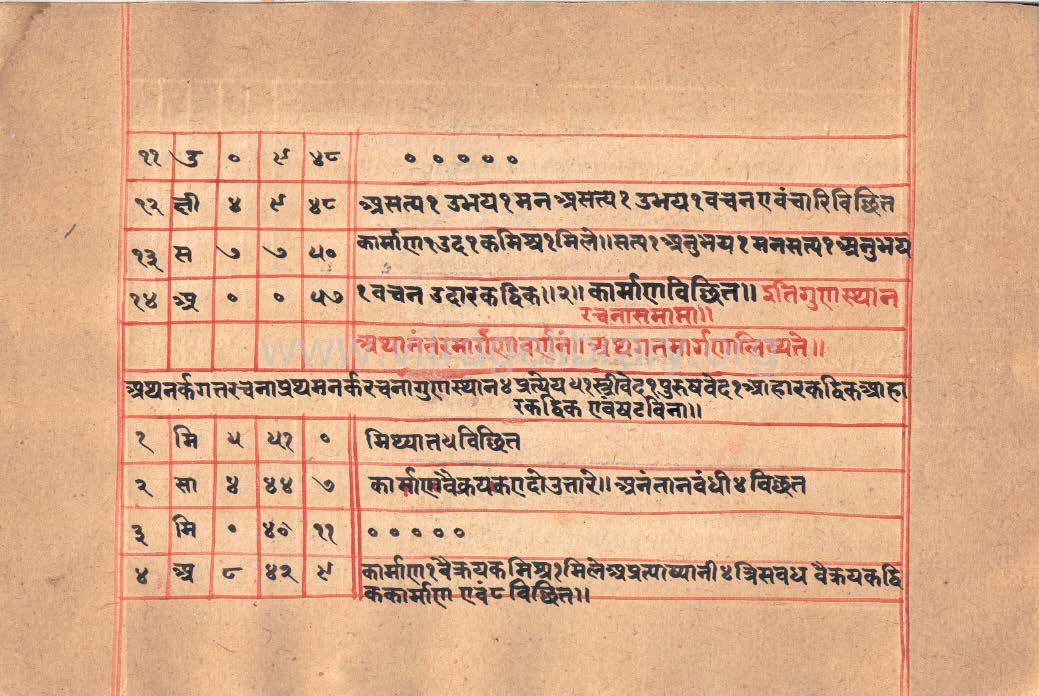 ११ उ ० ९ ४८ ० ० ० ० ०
१२ क्षी ४ ९ ४८ असत्य१ उभय१ मन असत्य१ उभय१ वचन एवं चारि विछित
१३ स ७ ७ ५० कार्माण१ उद१ कमिश्र१ मिले॥ सत्य१ अनुभय१ मन सत्य१ अनुभय
१४ अ ० ० ५७ १ वचन उदारकद्विक॥२॥ कार्माण विछित॥ इति गुणस्थान
रचना समाप्ता॥
अथानंतरमार्गणावर्णनं॥ अथ गतमार्गणालिष्यते॥
अथ नर्कगत्तरचना प्रथम नर्करचना गुणस्थान ४ प्रत्येय ५१ स्त्रीवेद१ पुरुषवेद१ आहारकद्विक आहा
रकद्विक एवं षट विना॥
१ मि ५ ५१ ० मिथ्यात ५ विछित
२ सा ४ ४४ ७ कार्माण वैक्रयक ए दो उत्तारे॥ अनंतानबंधी ४ विछित
३ मि ० ४० ११ ० ० ० ० ०
४ अ ८ ४२ ९ कार्माण१ वैक्रयकमिश्र१ मिले अप्रत्याष्यानी ४ त्रिसवध वैक्रयकद्वि
क कार्माण एवं ८ विछित॥